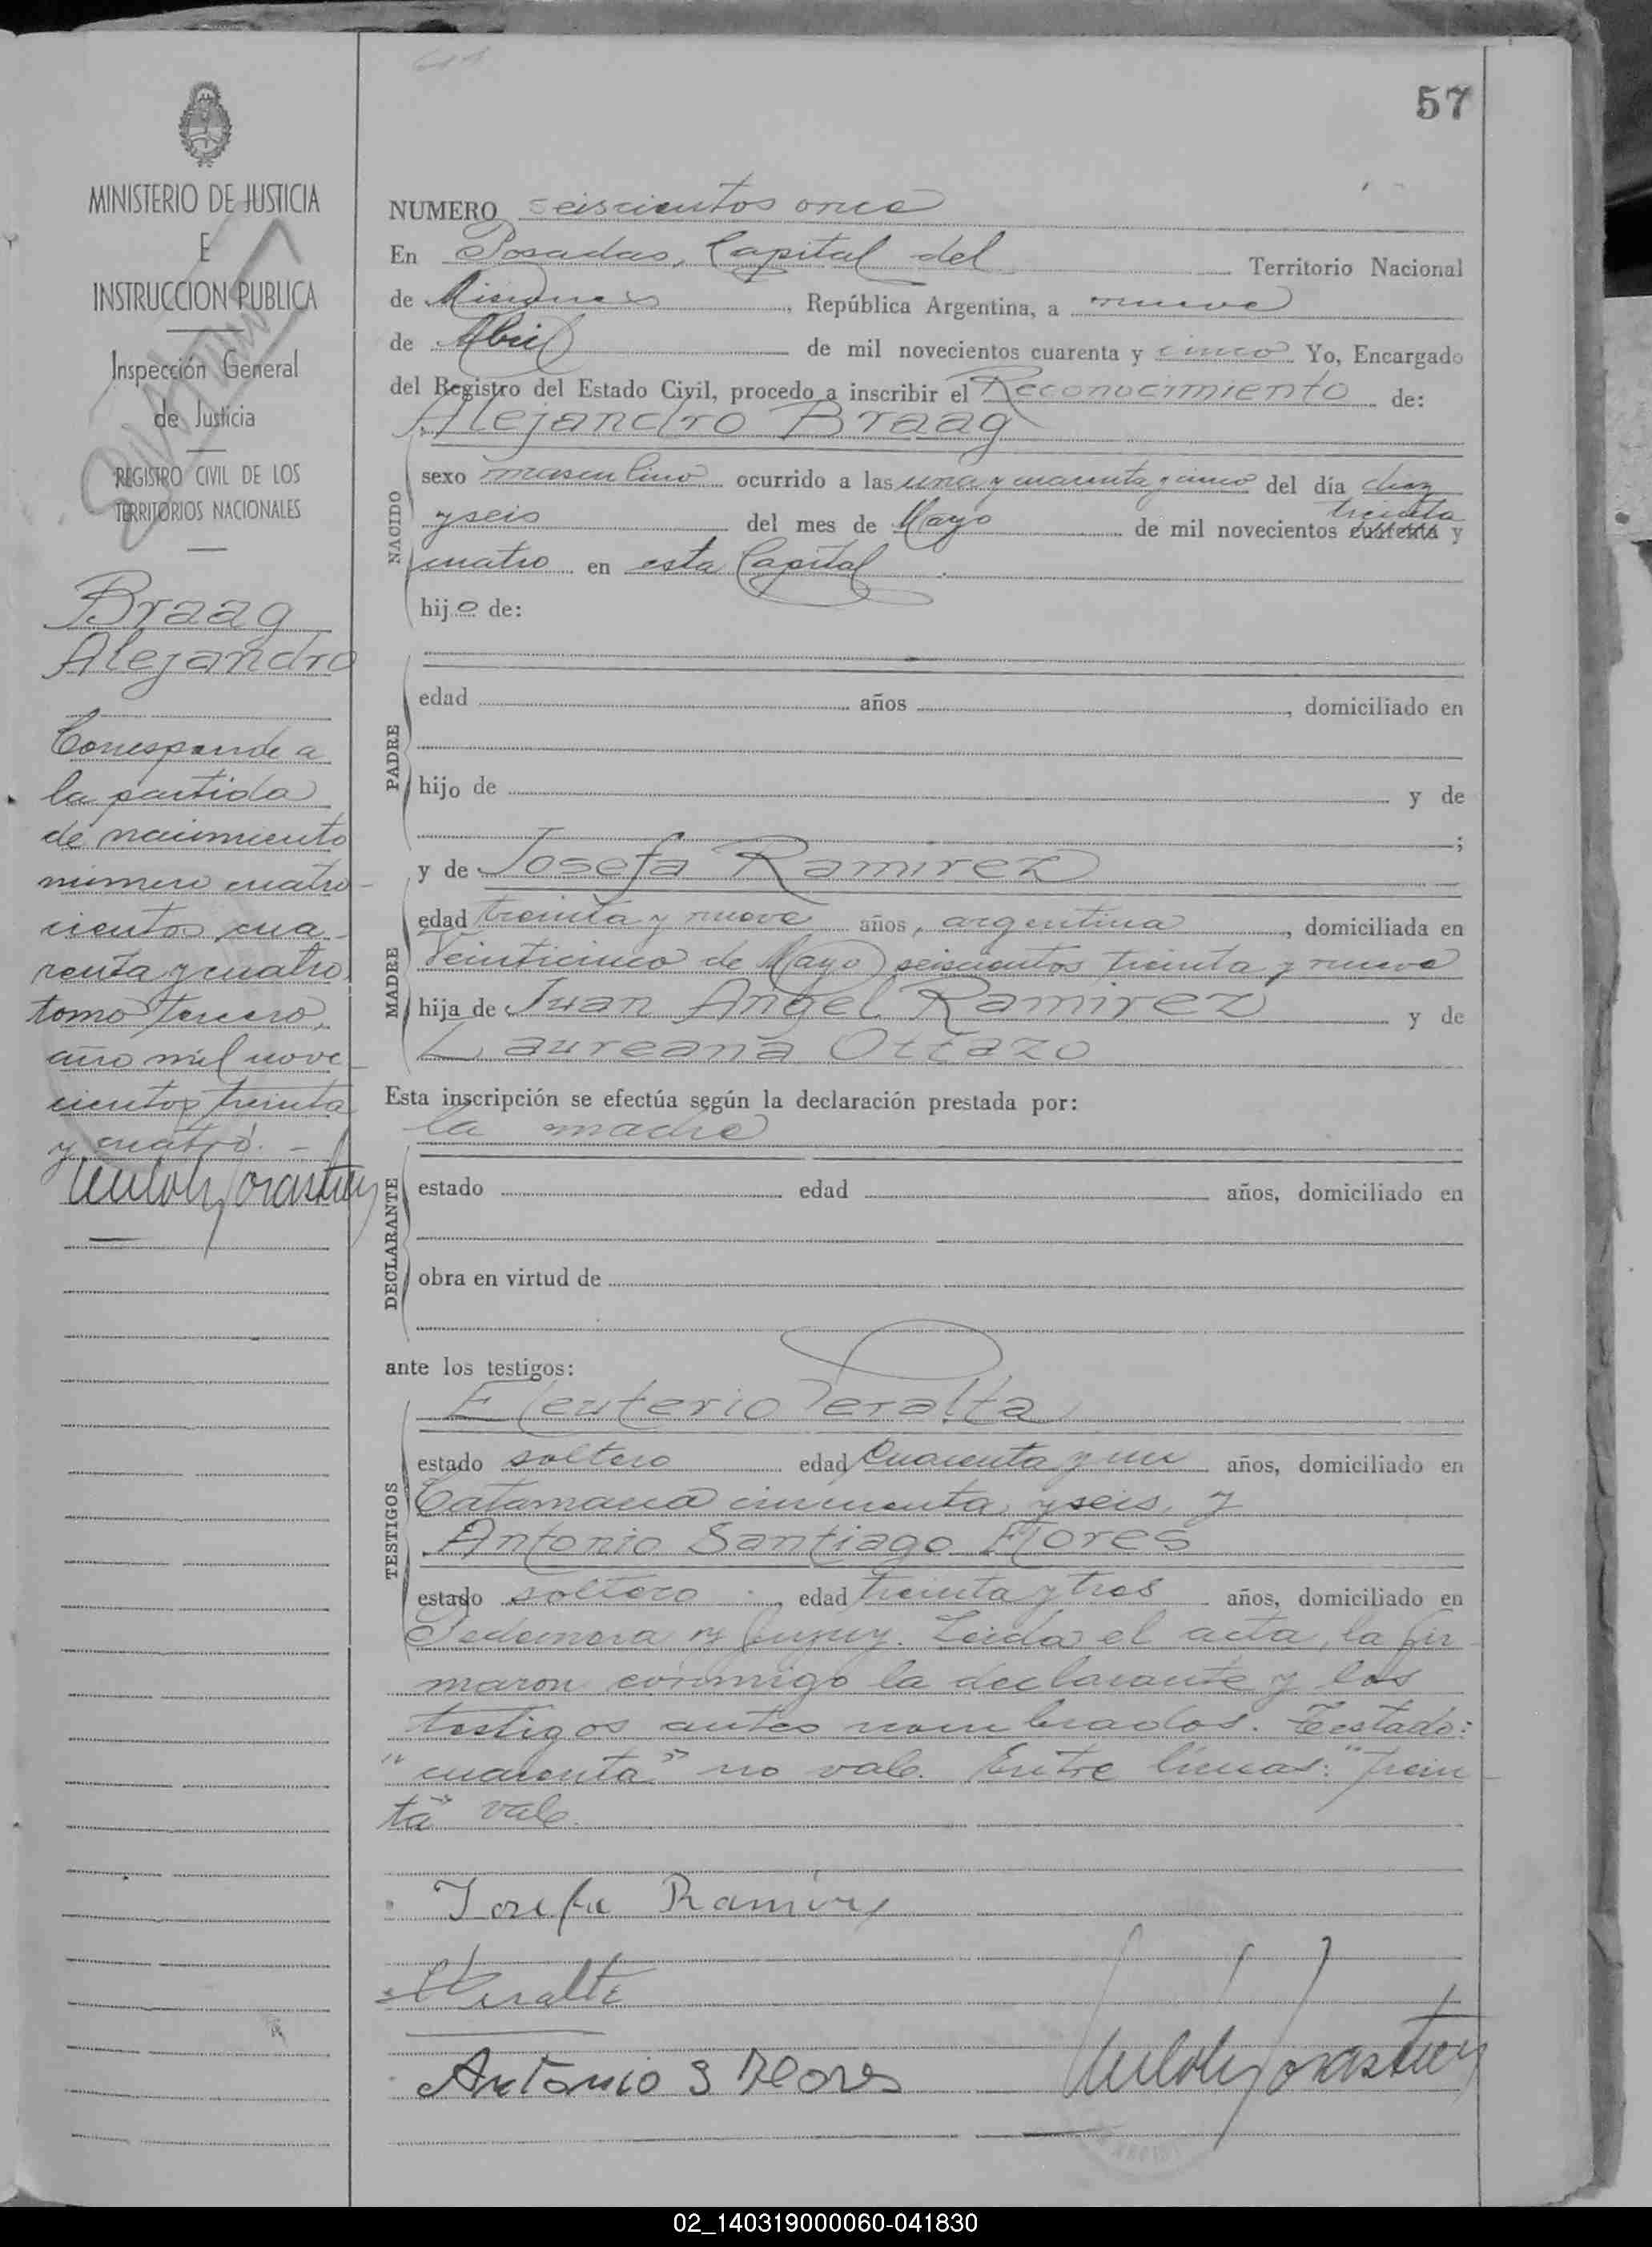 57
MINISTERIO DE JUSTICIA
E
INSTRUCCION PUBLICA
Inspección General
de Justicia
REGISTRO CIVIL DE LOS
TERRITORIOS NACIONALES
Braag
Alejandro
Corresponde a
la partida
de nacimiento
número cuatro-
cientos cua-
renta y cuatro
tomo tercero,
año mil nove-
cientos treinta
y cuatro. -
NUMERO seiscientos once
En Posadas, Capital del Territorio Nacional
de Misiones, República Argentina, a nueve
de Abril de mil novecientos cuarenta y cinco Yo, Encargado
del Registro del Estado Civil, procedo a inscribir el Reconocimiento de:
Alejandro Braag
NACIDO
sexo masculino ocurrido a las una y cuarenta y cinco del día diez
treinta
y seis del mes de Mayo de mil novecientos cuarenta y
cuatro en esta Capital
hijo de:
PADRE
edad años, domiciliado en
hijo de y de
;
y de Josefa Ramirez
MADRE
edad treinta y nueve años, argentina, domiciliada en
Veinticinco de Mayo seiscientos treinta y nueve
hija de Juan Angel Ramirez y de
Laureana Ottazo
Esta inscripción se efectúa según la declaración prestada por:
la madre
DECLARANTE
estado edad años, domiciliado en
obra en virtud de
ante los testigos:
Eleuterio Peralta
TESTIGOS
estado soltero edad cuarenta y un años, domiciliado en
Catamarca cincuenta y seis, y
Antonio Santiago Flores
estado soltero edad treinta y tres años, domiciliado en
y Jujuy. Leida el acta, la fir-
maron conmigo la declarante y los
testigos antes nombrados. Testado:
"cuarenta" no vale. Entre líneas: "trein-
ta" vale.
Josefa Ramirez
Peralta
Antonio S Flores
02_140319000060-041830